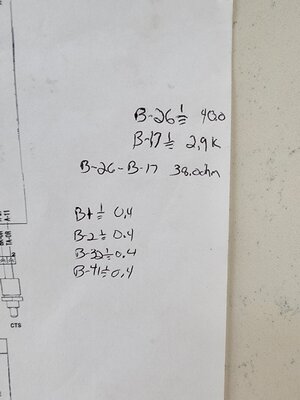 B-26 ⏚ 40.0
B-17 ⏚ 2,9 K
B-26 - B-17 38.0ohm
B1 ⏚ 0.4
B-2 ⏚ 0.4
B-32 ⏚ 0.4
B-41 ⏚ 0.4
A-11
CTS